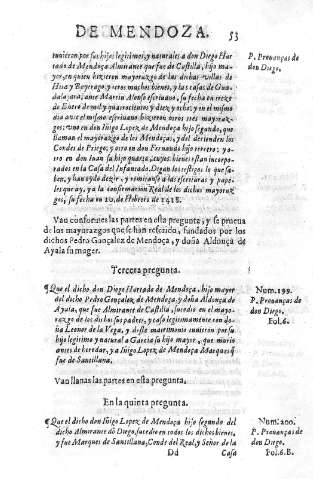 DE MENDOZA. 53
tuuieron por sus hijos legitimos, y naturales a don Diego Hur
tado de Mendoça Almirante que fue de Castilla, hijo ma-
yor, en quien hizieron mayorazgo de las dichas villas de
Hita y Buytrago, y otros muchos bienes, y las casas de Gua-
dalajara, ante Martin Alonso escriuano, su fecha en treze
de Enero de mil y quatrocientos y diez y ocho; y en el mismo
dia ante el mismo escriuano hizieron otros tres mayoraz-
gos: vno en don Iñigo Lopez de Mendoça hijo segundo, que
llaman el mayorazgo de los Mendoças, y del decienden los
Condes de Priego; y otro en don Fernando hijo tercero; y o-
tro en don Iuan su hijo quarto, cuyos bienes estan incorpo-
rados en la Casa del Infantado. Dizen los testigos lo que sa-
ben, y han oydo dezir, y remitense a las escrituras y pape-
les que ay, y a la confirmacion Real de los dichos mayoraz-
gos, su fecha en 20. de Hebrero de 1418.
P. Prouanças de
don Diego.
Van conformes las partes en esta pregunta, y se prueua
de los mayorazgos que se han referido, fundados por los
dichos Pedro Gonçalez de Mendoça, y doña Aldonça de
Ayala su muger.
Tercera pregunta.
¶ Que el dicho don Diego Hurtado de Mendoça, hijo mayor
del dicho Pedro Gonçalez de Mendoça, y doña Aldonça de
Ayala, que fue Almirante de Castilla, sucedio en el mayo-
razgo de los dichos sus padres, y caso legitimamente con do-
ña Leonor de la Vega, y deste matrimonio tuuieron por su
hijo legitimo y natural a Garcia su hijo mayor, que murio
antes de heredar, y a Iñigo Lopez de Mendoça Marques q̃
fue de Santillana.
Num. 199.
P. Prouanças de
don Diego.
Fol. 6.
Van llanas las partes en esta pregunta.
En la quinta pregunta.
¶ Que el dicho don Iñigo Lopez de Mendoça hijo segundo del
dicho Almirante dõ Diego, sucedio en todos los dichos bienes,
y fue Marques de Santillana, Conde del Real, y Señor de la
Dd Casa
Num. 200.
P. Prouanças de
don Diego.
Fol. 6. B.